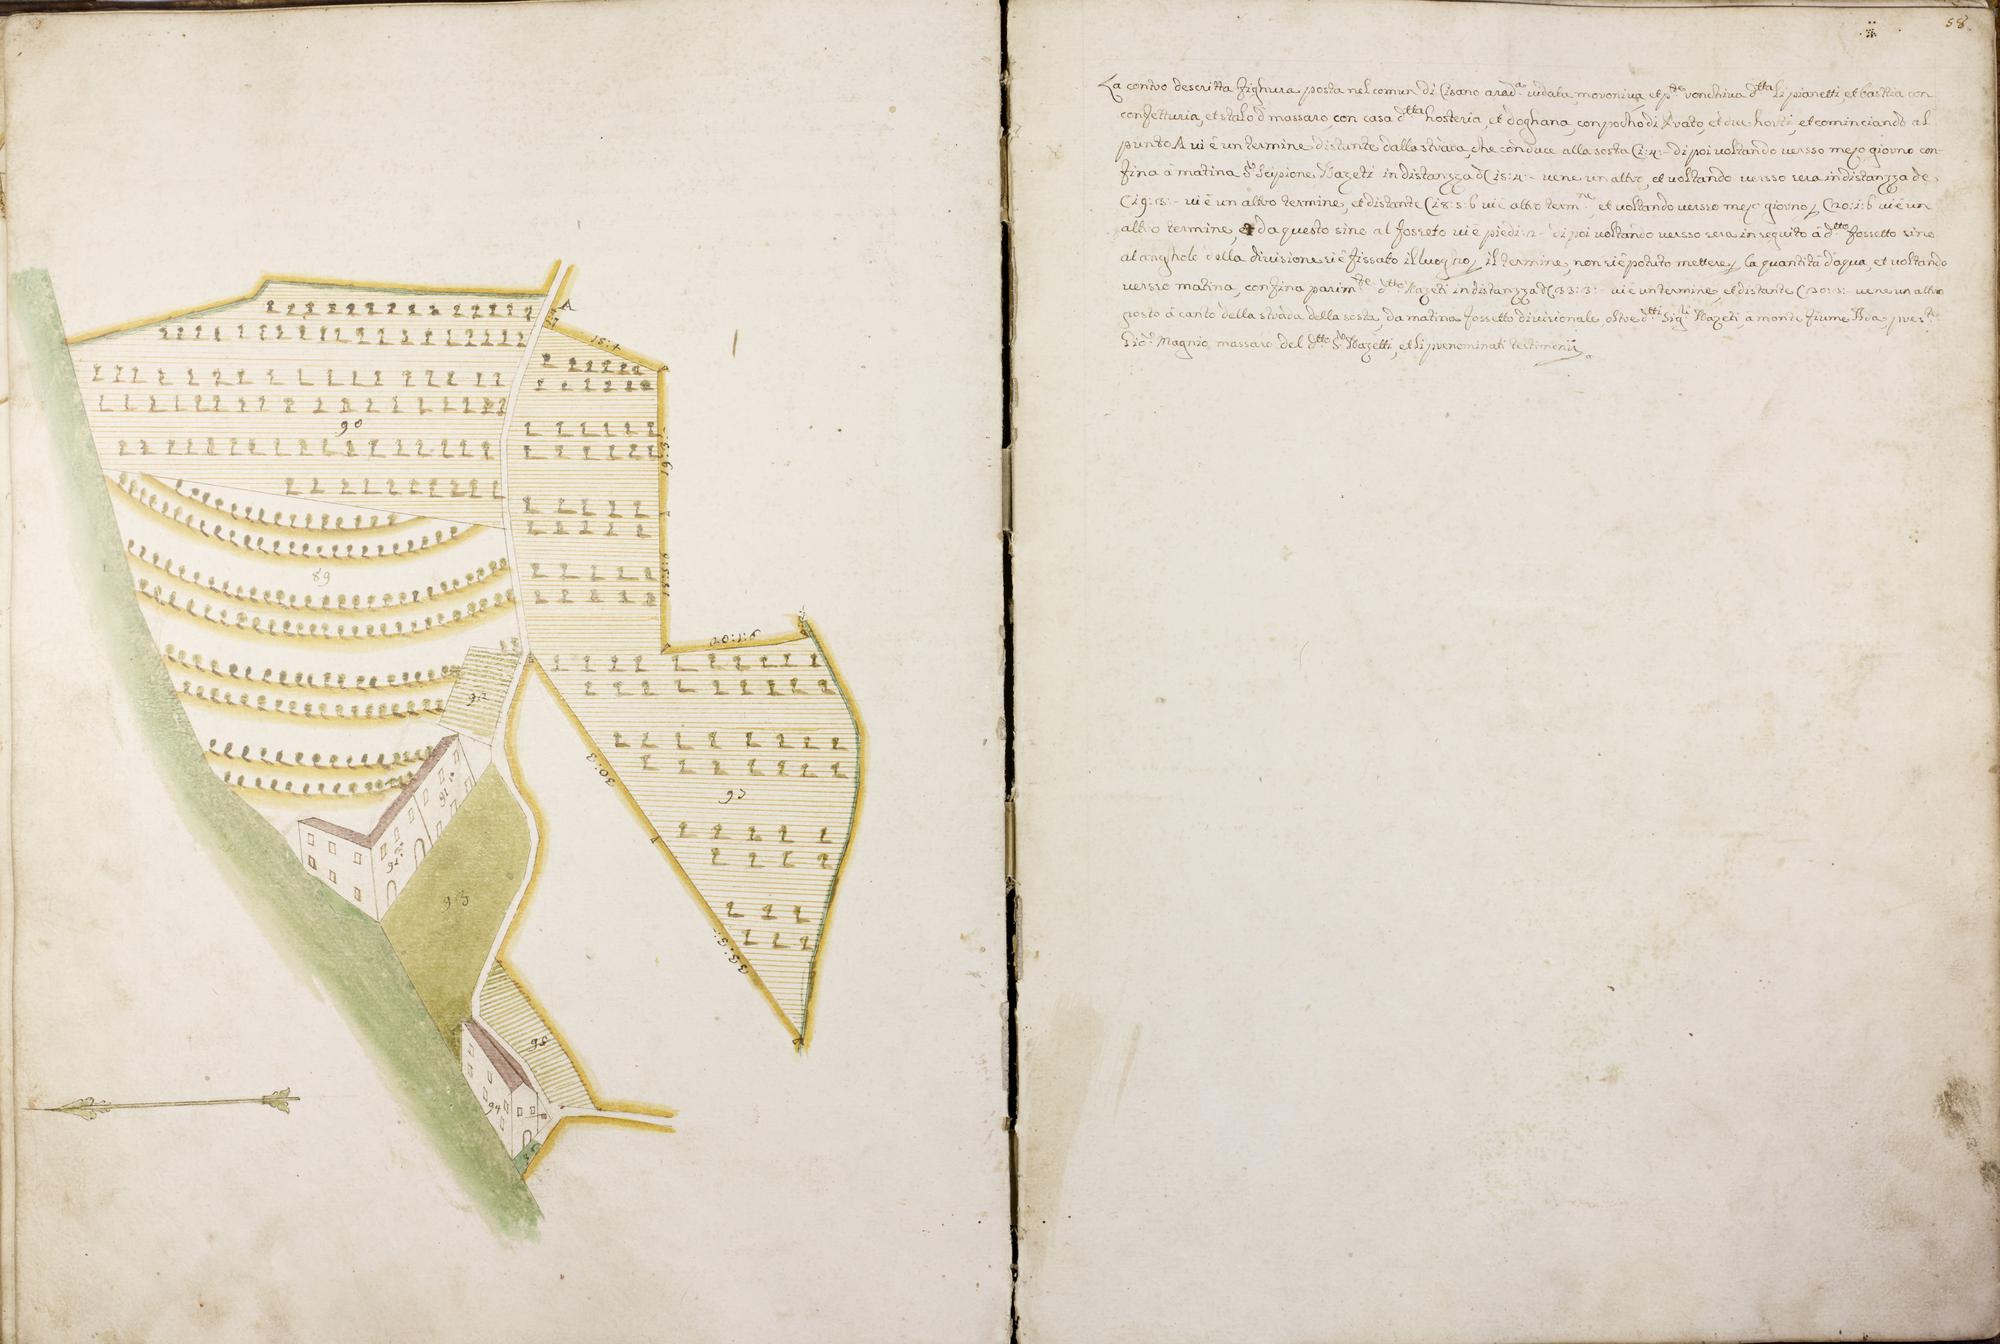 A
15:4
90
19:3:-
18:5:6
89
20:1:6
92
30:3
93
91
91
93
33:3:
95
94
58
La contro descritta fighura posta nel comun di Cisano arad.a vidata, moroniva et p.te ronchiva d.tta li pianetti, et bastia con
confetturia, et stalo d massaro, con casa d.tta hosteria, et doghana, con pocho di Prato, et due horti, et cominciando al
punto A vi è un termine distante dalla strada, che conduce alla sosta C 1:4:- di poi voltando versso mezo giorno con-
fina à matina S.r Scipione Vazeti in distanzza d C 15:4:- vene un altro, et voltando versso sera in distanzza de
C 19:3:- vi è un altro termine, et distante C 18:5:6 vi è altro term.ne, et voltando versso mezo giorno C 20:1:6 vi è un
altro termine, da questo sino al fosseto vi è piedi:2- di poi voltando versso sera in seguito à d.tto fossetto sino
al anghole della divisione si è fissato il luogho il termine, non si è potuto mettere la quantità d'aqua, et voltando
versso matina, confina parim.te d.tto Vazeti in distanzza d C 33:3:- vi è un termine, et distante C 30:3:- vene un altro
posto à canto della strada della sosta, da matina fossetto divisionale oltre d.tti Sig.ri Vazeti, a monte fiume Ada, pres.te
Gio: Magnio massaro del d.tto S.r Vazetti, et li prenominati testimonij